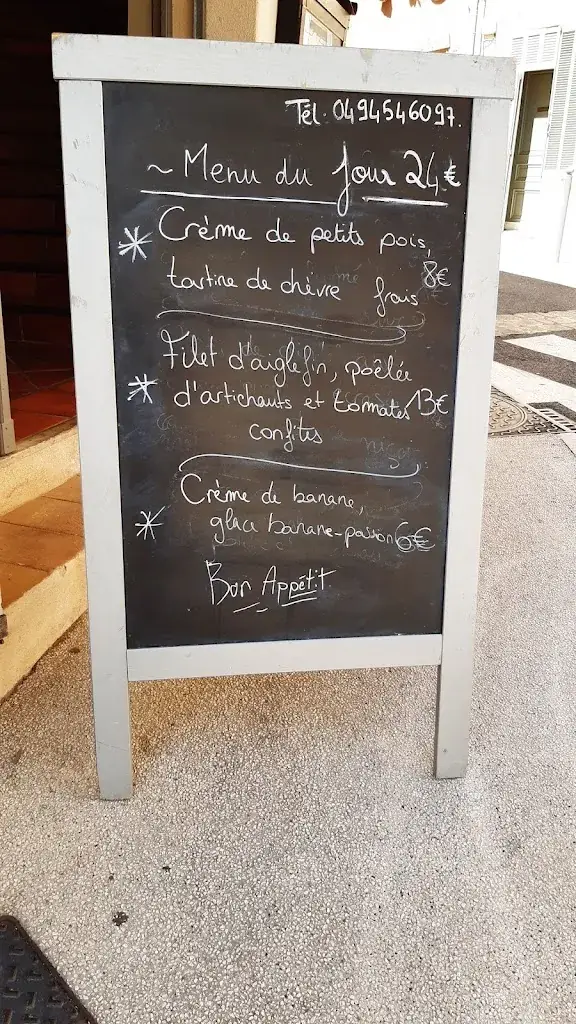 Tél. 0494546097.
~ Menu du Jour 24€
* Crème de petits pois,
tartine de chèvre frais 8€
Filet d'aiglefin, poêlée
* d'artichauts et tomates 13€
confites
Crème de banane,
* glace banane-passion 6€
Bon Appétit